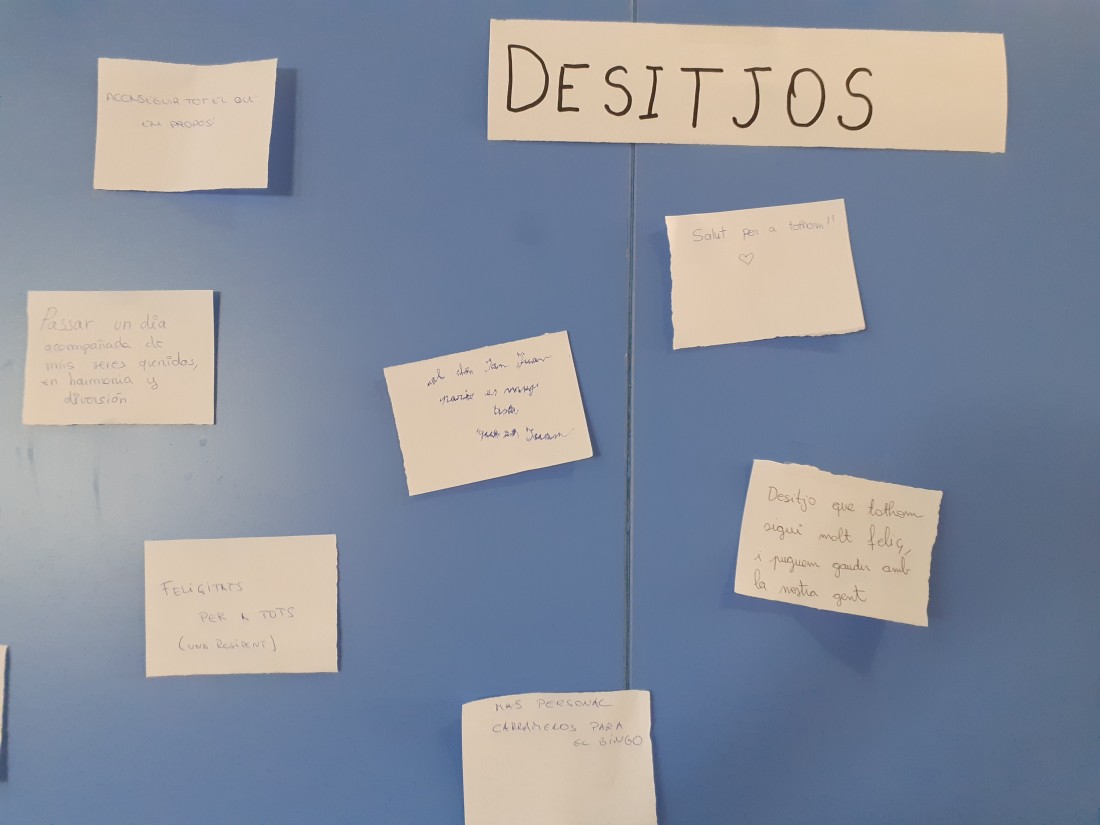 DESITJOS
ACONSEGUIR TOT EL QUE
EM PROPOSI
Salut per a tothom!!
Passar un dia
acompañada de
mis seres queridos,
en harmonia y
diversión
San Juan
es
Desitjo que tothom
sigui molt feliç,
i puguem gaudir amb
la nostra gent
FELIÇITATS
PER A TOTS
(UNA RESIDENT)
MAS PERSONAL
CARRAMEROS PARA
EL BINGO